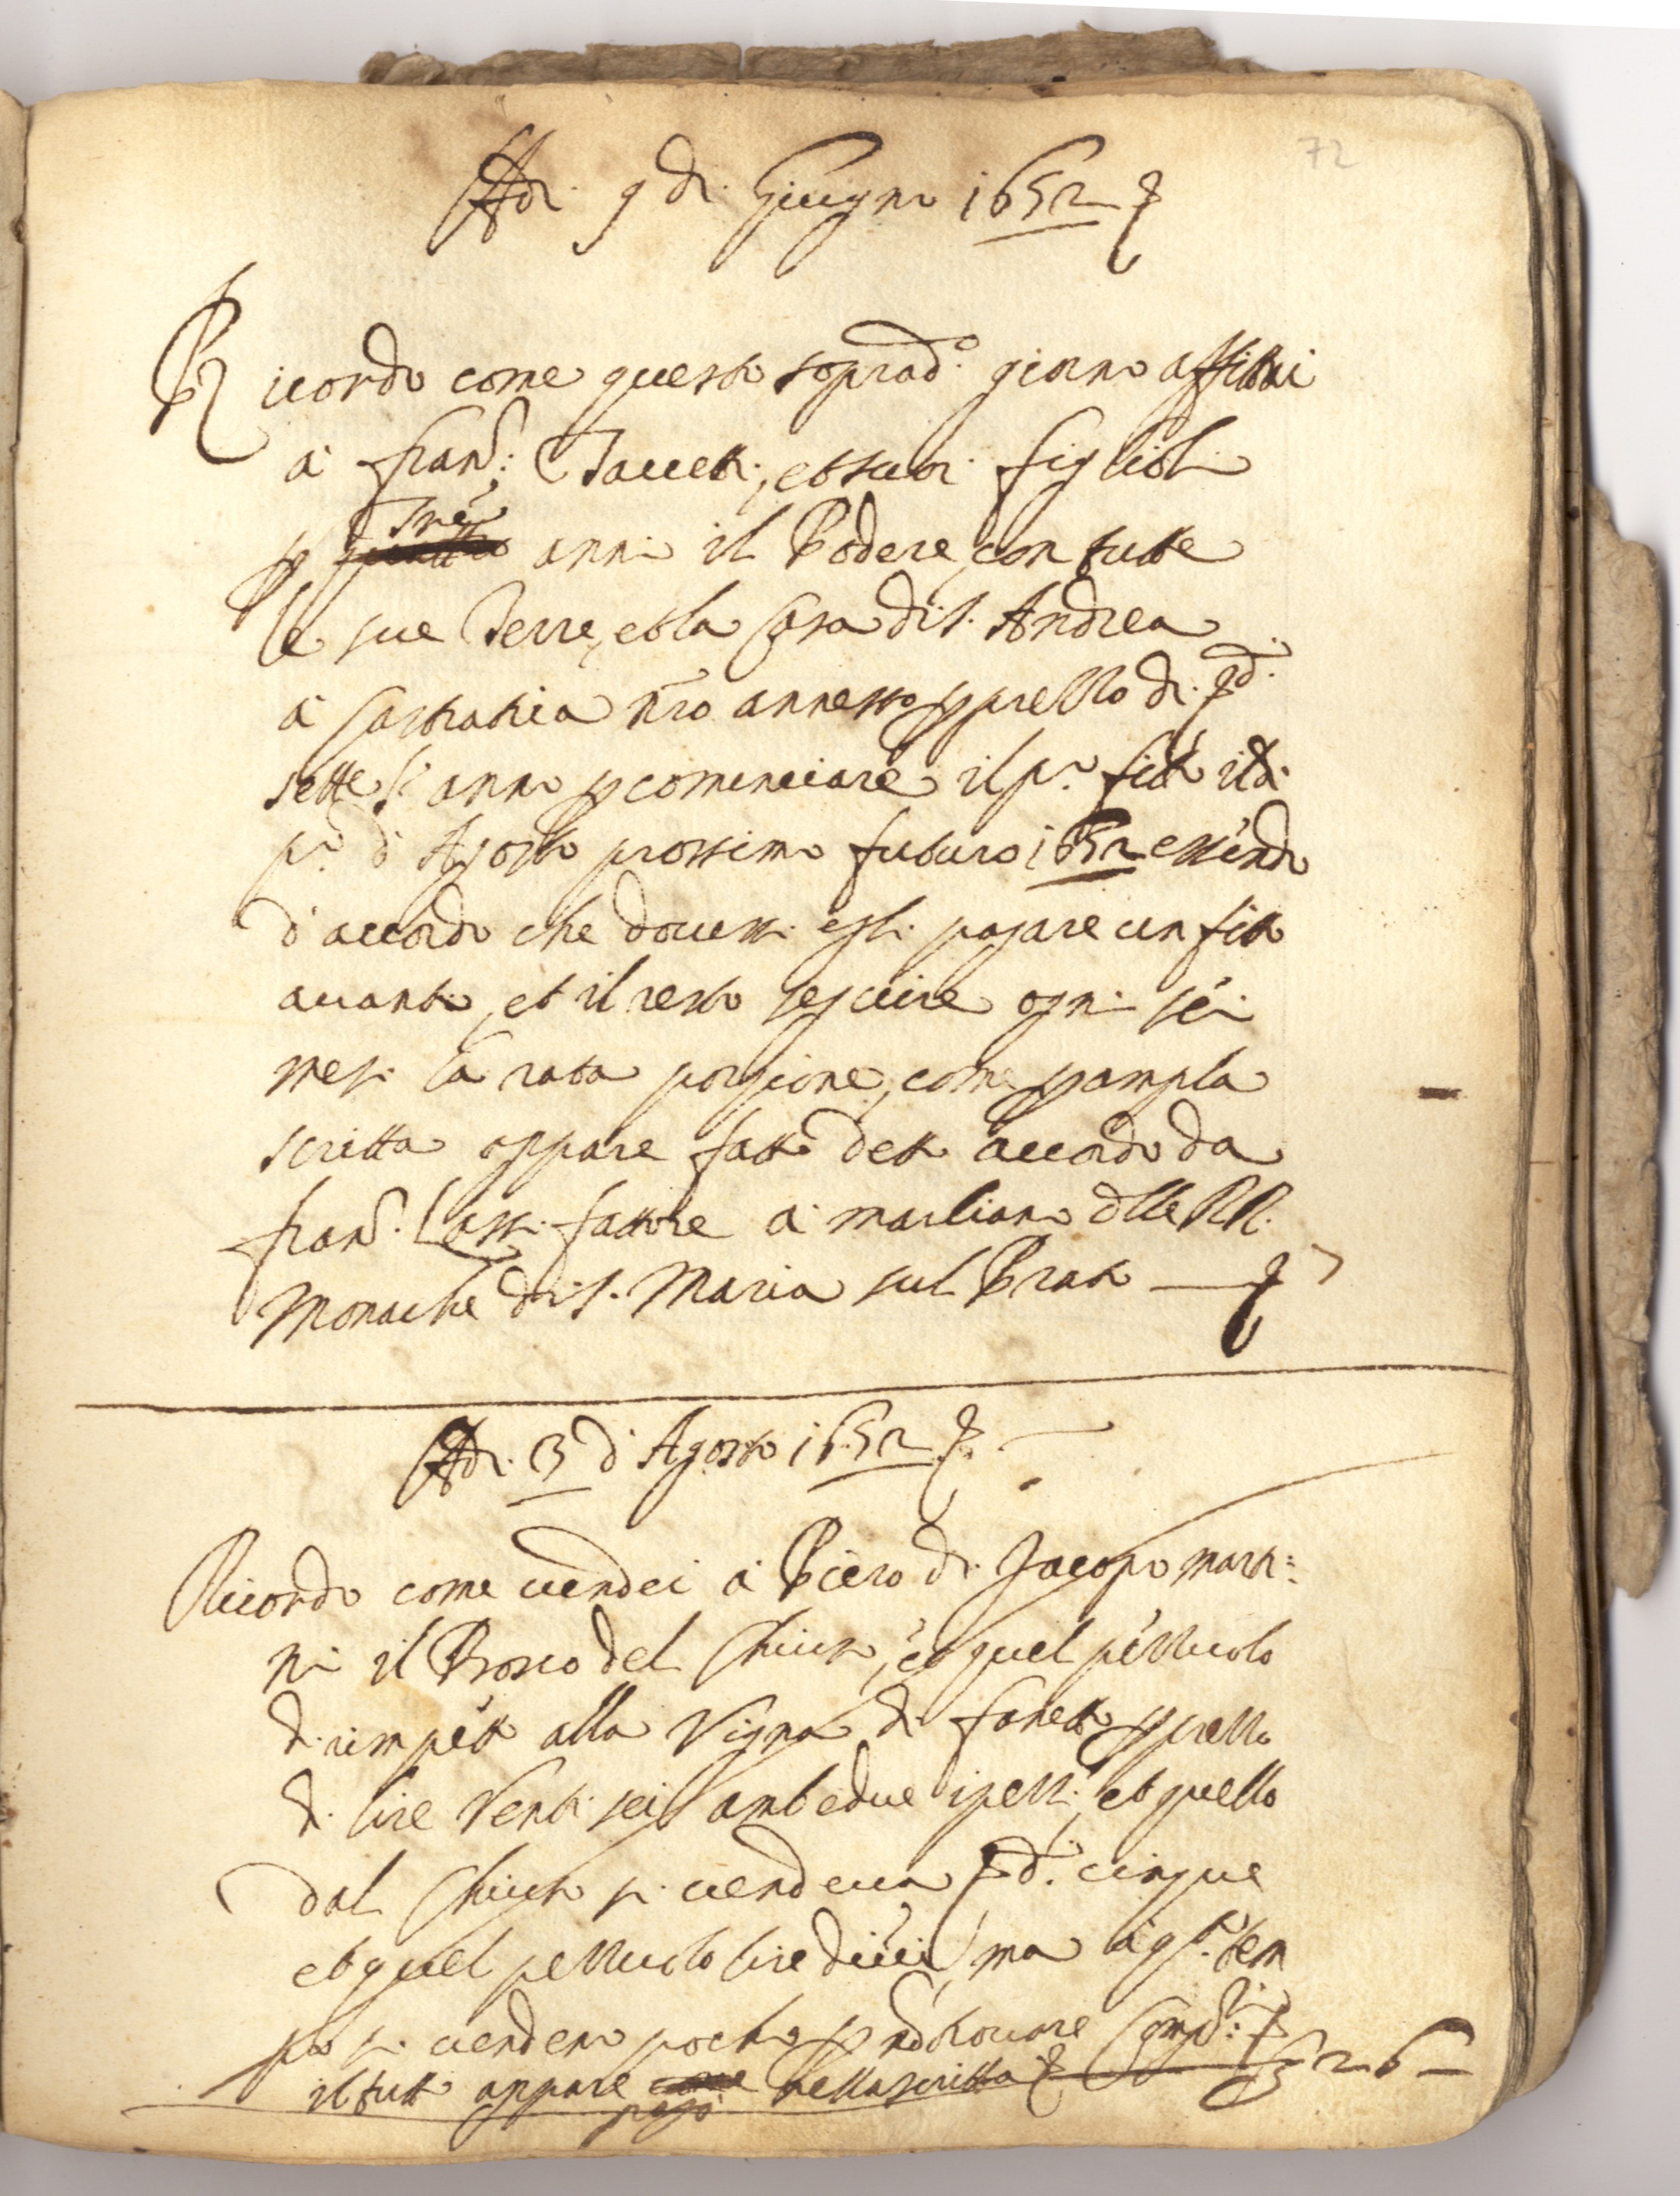 72
Adi. 9 di. Giugno 1652
Ricordo come questo soprad.o giorno affittai
à Fran.co: Tauetti, et suoi figlioli
Trè
p anni il Podere, con tutte
le sue Terre, et la Casa di S. Andrea
à nro annesso p prezzo di
sette l' anno p cominciare il p.o fitto il dì
p.o d' Agosto prossimo futuro 1652 essendo
d' accordo che douessi egli pagare un fitto
auanti, et il resto seguire ogni séi
mesi la rata porzione, come p ampla
scritta appare fatto detto accordo da
Fran.co Lassi fattore à Marliano dlle RR.
Monache di S. Maria sul Prato
Adi. 3 d' Agosto 1652
Ricordo come uendei à Piero di Jacopo Marti=
ni il Bosco del Chiuso, et quel pezzuolo
di rimpétto alla Vigna di p prezzo
di lire Venti sei ambedue i pezzi, et quello
dal Chiuso si uendeua cinque
et quel pezzuolo lire diéci, ma à q.o tem
po si uendero poche p nō trouare
il tutto appare nella scritta 26 —